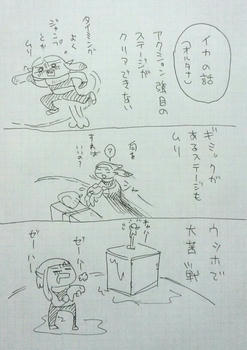 イカの話
(オルタナ)
アクション強めの
ステージが
クリアできない
タイミング
よく
ジャンプ
とか
ムリ
ギミックが
あるステージも
ムリ
?
何を
すれば
いいの?
ウシホで
大苦戦
ゼーハー
ゼーハー